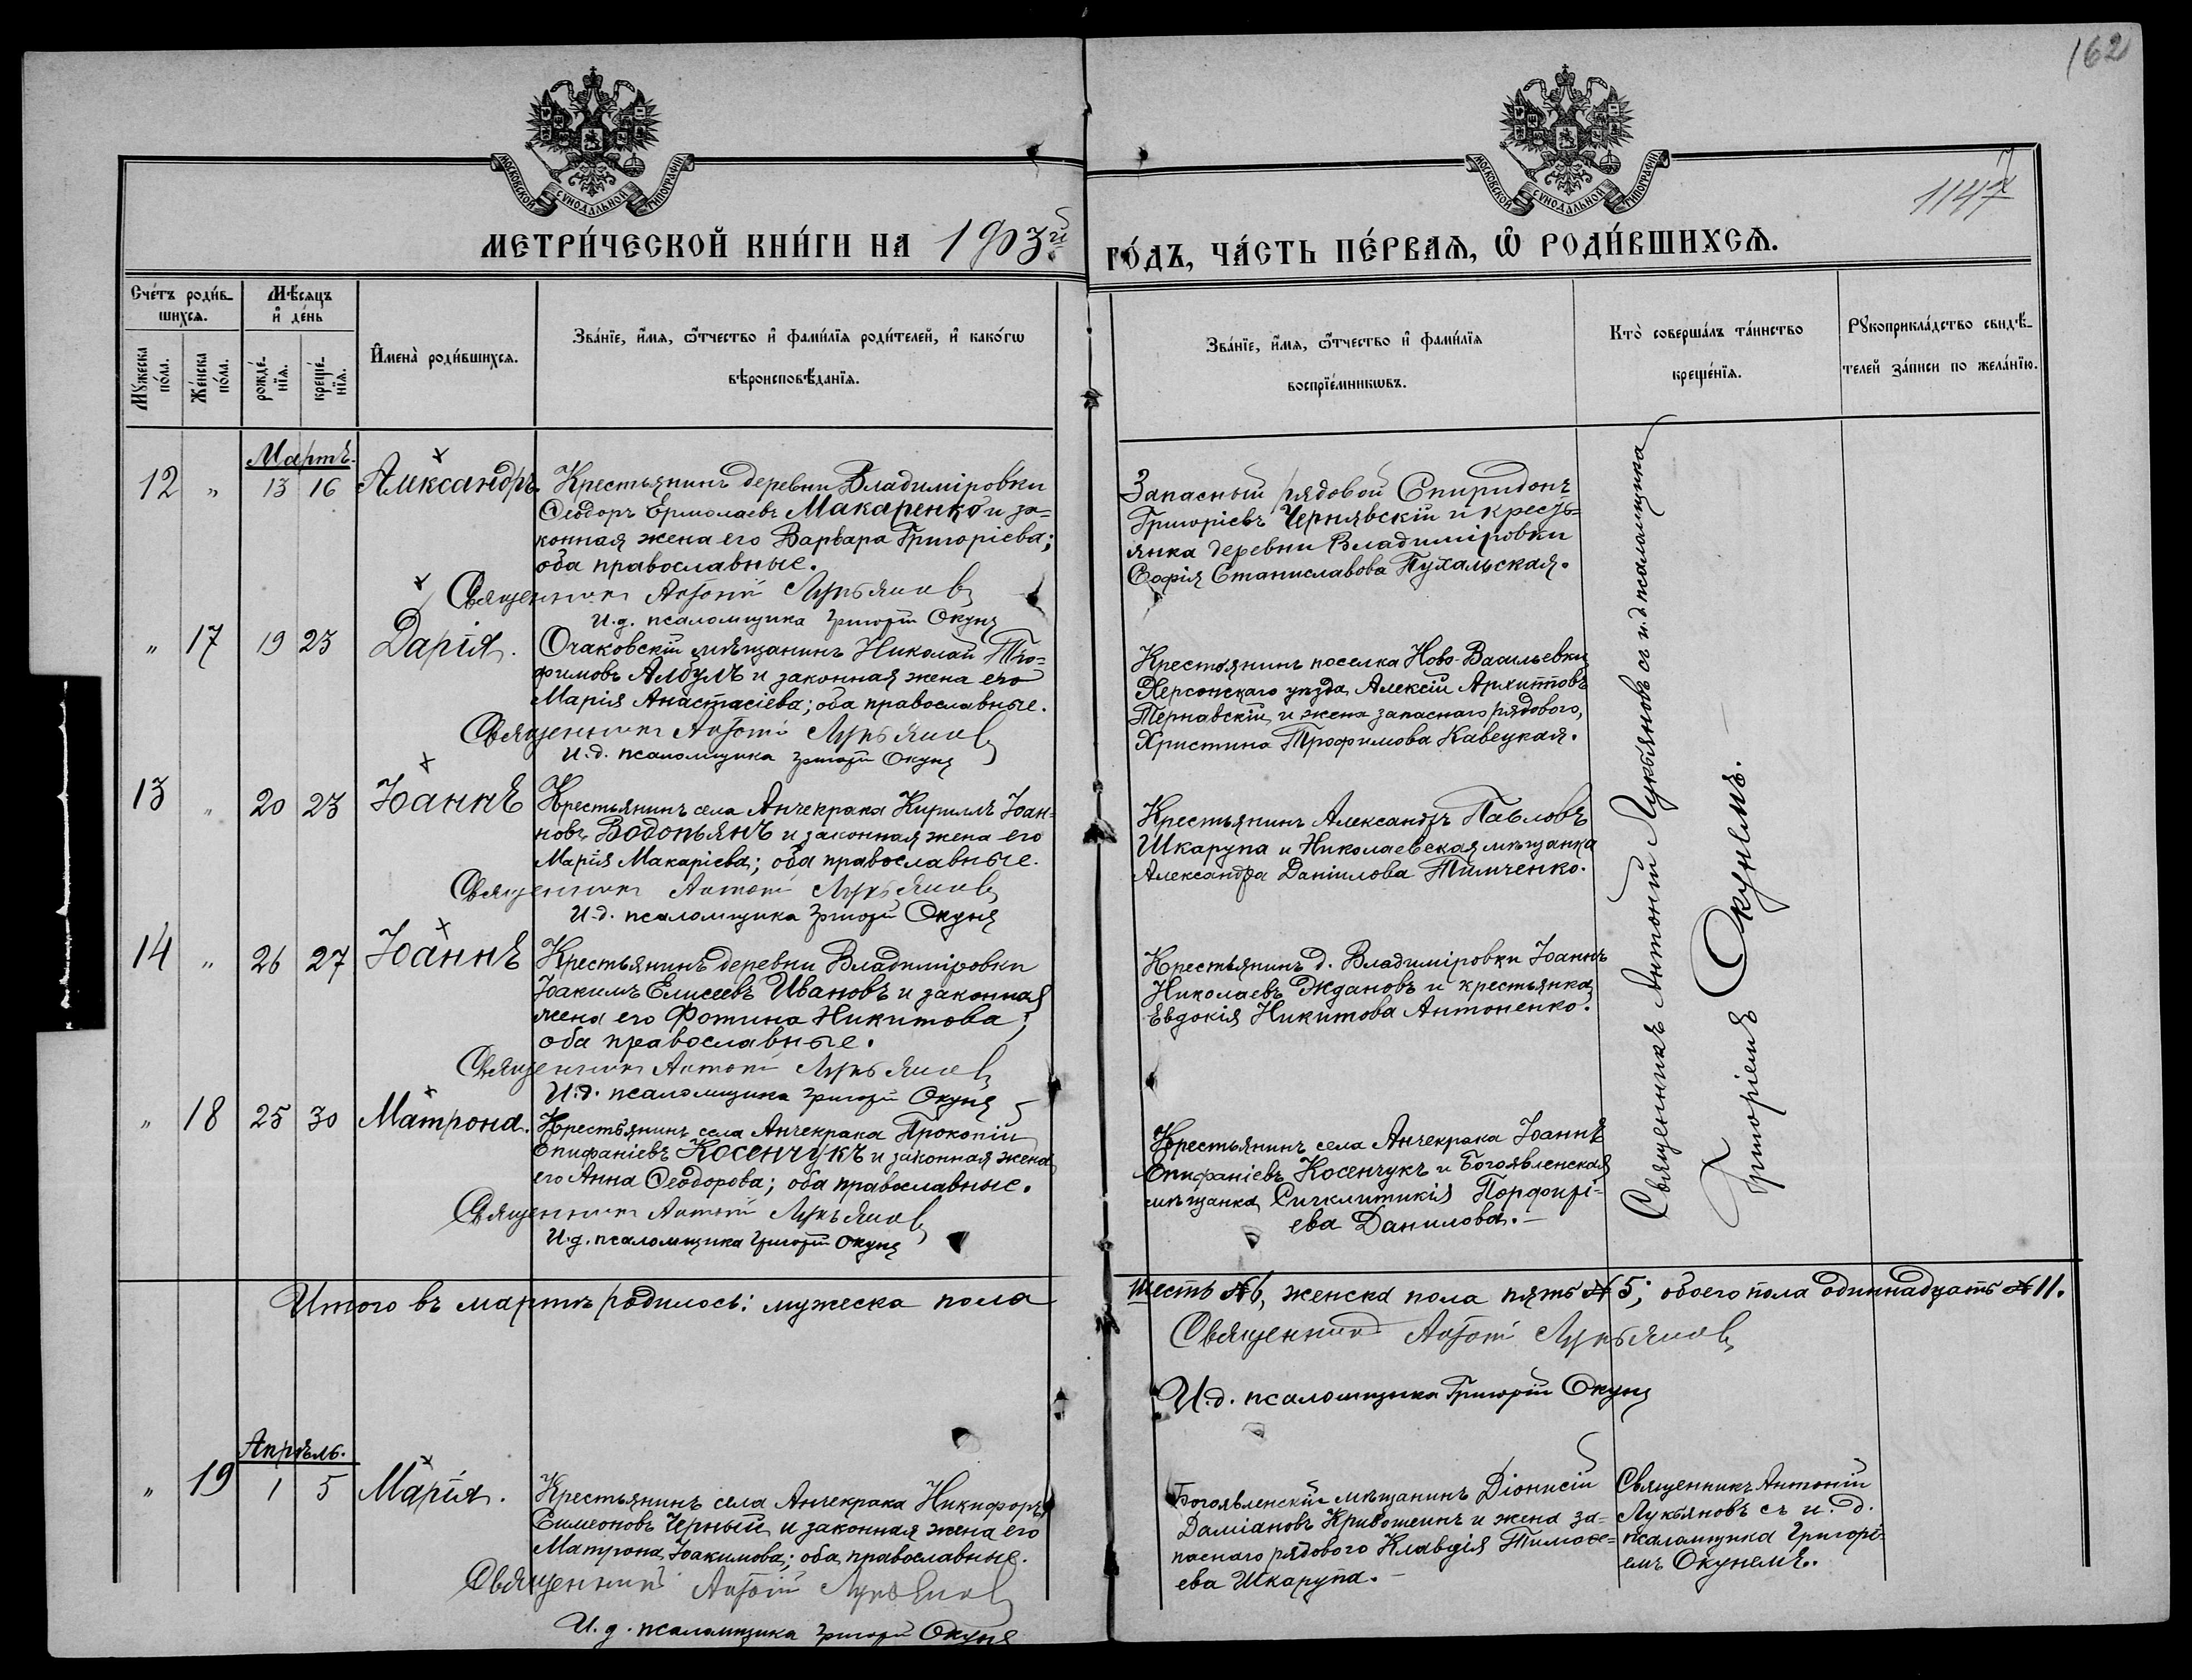 162
1147
МОСКОВСКОЙ СѴНОДАЛЬНОЙ ТИПОГРАФІИ
МОСКОВСКОЙ СѴНОДАЛЬНОЙ ТИПОГРАФІИ
МЕТРИ́ЧЕСКОЙ КНИ́ГИ НА 1903й
ГО́ДЪ, ЧА́СТЬ ПЕ́РВАѦ, Ѡ РОДИ́ВШИХСѦ.
Сче́тъ роди́в-
шихсѧ.
Мꙋжеска по́ла.
Же́нска по́ла.
Мѣ́сѧцъ и҆ де́нь
рожде́-нїѧ.
креще́-нїѧ.
И҆мена̀ роди́вшихсѧ.
Зва́нїе, и҆́мѧ, ѻ҆́тчество и҆ фами́лїѧ роди́телей, и҆ како́гѡ
вѣроисповѣ́данїѧ.
Зва́нїе, и҆́мѧ, ѻ҆́тчество и҆ фами́лїѧ
воспрїе́мникѡвъ.
Кто̀ соверша́лъ та́инство
креще́нїѧ.
Рꙋкоприкла́дство свидѣ́-
телей за́писи по жела́нїю.
Мартъ.
12 " 13 16 Александръ.
Крестьянинъ деревни Владиміровки
Ѳеодоръ Ермолаевъ Макаренко и за=
конная жена его Варвара Григоріева;
оба православные.
Священникъ Антоній Лукьяновъ
И.д. псаломщика Григорій Окунь
Запасный рядовой Спиридонъ
Григоріевъ Чернявскій и кресть=
янка деревни Владиміровки
Софія Станиславова Пухальская.
" 17 19 23 Дарія.
Очаковскій мѣщанинъ Николай Тро=
фимовъ Албулъ и законная жена его
Марія Анастасіева; оба православные.
Священникъ Антоній Лукьяновъ
И.д. псаломщика Григорій Окунь
Крестьянинъ поселка Ново-Васильевки
Херсонскаго уѣзда Алексій Архиптовъ
Тернавскій и жена запаснаго рядового,
Христина Трофимова Кавецкая.
13 " 20 23 Іоаннъ
Крестьянинъ села Анчекрака Кириллъ Іоан-
новъ Водопьянъ и законная жена его
Марія Макаріева; оба православные.
Священникъ Антоній Лукьяновъ
И.д. псаломщика Григорій Окунь
Крестьянинъ Александръ Павловъ
Шкарупа и Николаевская мѣщанка
Александра Даніилова Тимченко.
14 " 26 27 Іоаннъ
Крестьянинъ деревни Владиміровки
Іоакимъ Елисеевъ Ивановъ и законная
жена его Фотина Никитова;
оба православные.
Священникъ Антоній Лукьяновъ
И.д. псаломщика Григорій Окунь
Крестьянинъ д. Владиміровки Іоаннъ
Николаевъ Ждановъ и крестьянка
Евдокія Никитова Антоненко.
" 18 25 30 Матрона.
Крестьянинъ села Анчекрака Прокопій
Епифаніевъ Косенчукъ и законная жена
его Анна Ѳеодорова; оба православные.
Священникъ Антоній Лукьяновъ
И.д. псаломщика Григорій Окунь
Крестьянинъ села Анчекрака Іоаннъ
Епифаніевъ Косенчукъ и Богоявленская
мѣщанка Синклитикія Порфирі-
ева Данилова.
Священникъ Антоній Лукьяновъ съ и.д. псаломщика
Григоріемъ Окунемъ.
Итого въ мартѣ родилось: мужеска пола
шесть №6, женска пола пять №5; обоего пола одиннадцать №11.
Священникъ Антоній Лукьяновъ
И.д. псаломщика Григорій Окунь
Апрѣль.
" 19 1 5 Марія.
Крестьянинъ села Анчекрака Никифоръ
Симеоновъ Черный и законная жена его
Матрона Іоакимова; оба православные.
Священникъ Антоній Лукьяновъ
И.д. псаломщика Григорій Окунь
Богоявленскій мѣщанинъ Діонисій
Даміановъ Кривошеинъ и жена за=
паснаго рядового Клавдія Тимоѳе=
ева Шкарупа.
Священникъ Антоній
Лукьяновъ съ и. д.
псаломщика Григорі-
емъ Окунемъ.